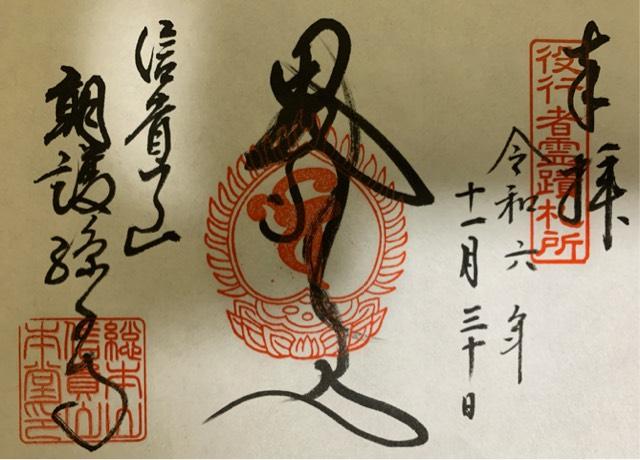 奉拝
役行者霊蹟札所
令和六年
十一月三十日
信貴山
朝護孫子寺
総本山
信貴山